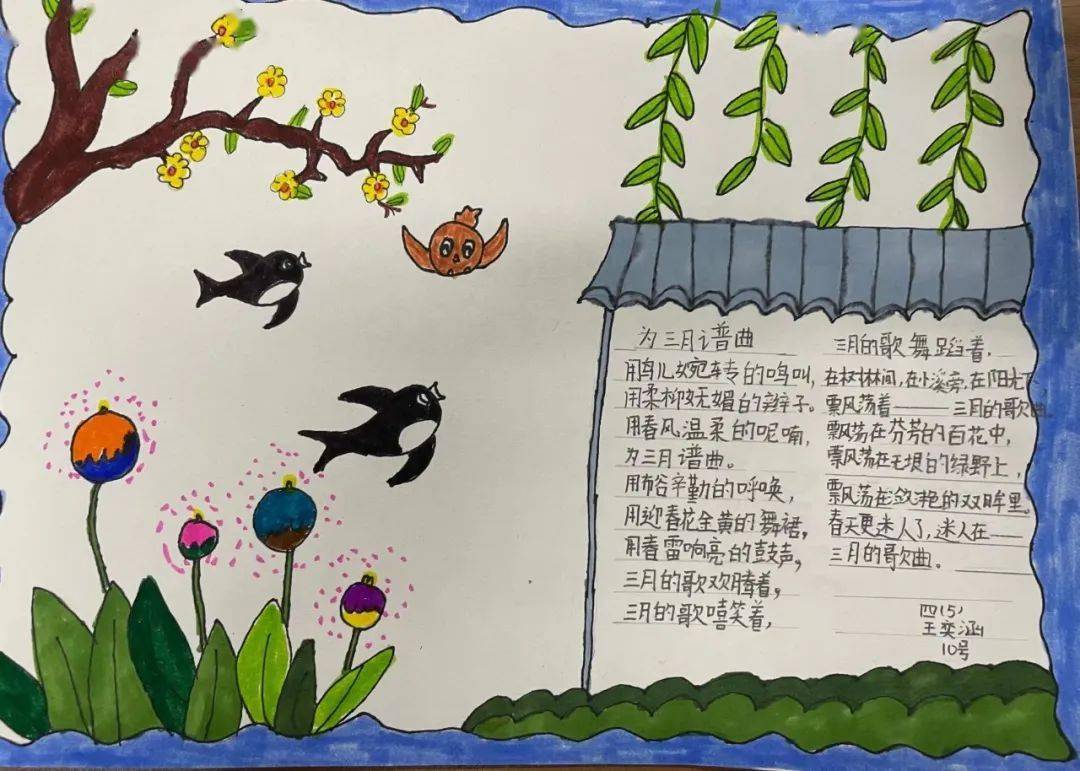 为三月谱曲
用鸟儿婉转的鸣叫,
用柔柳妩媚的辫子。
用春风温柔的呢喃,
为三月谱曲。
用布谷辛勤的呼唤,
用迎春花金黄的舞裙,
用春雷响亮的鼓声,
三月的歌欢腾着,
三月的歌嘻笑着,
三月的歌舞蹈着,
在树林间,在小溪旁,在阳光下
飘荡着——三月的歌曲
飘荡在芬芳的百花中,
飘荡在无垠的绿野上,
飘荡在潋滟的双眸里。
春天更迷人了,迷人在——
三月的歌曲。
四(5)
王奕涵
10号